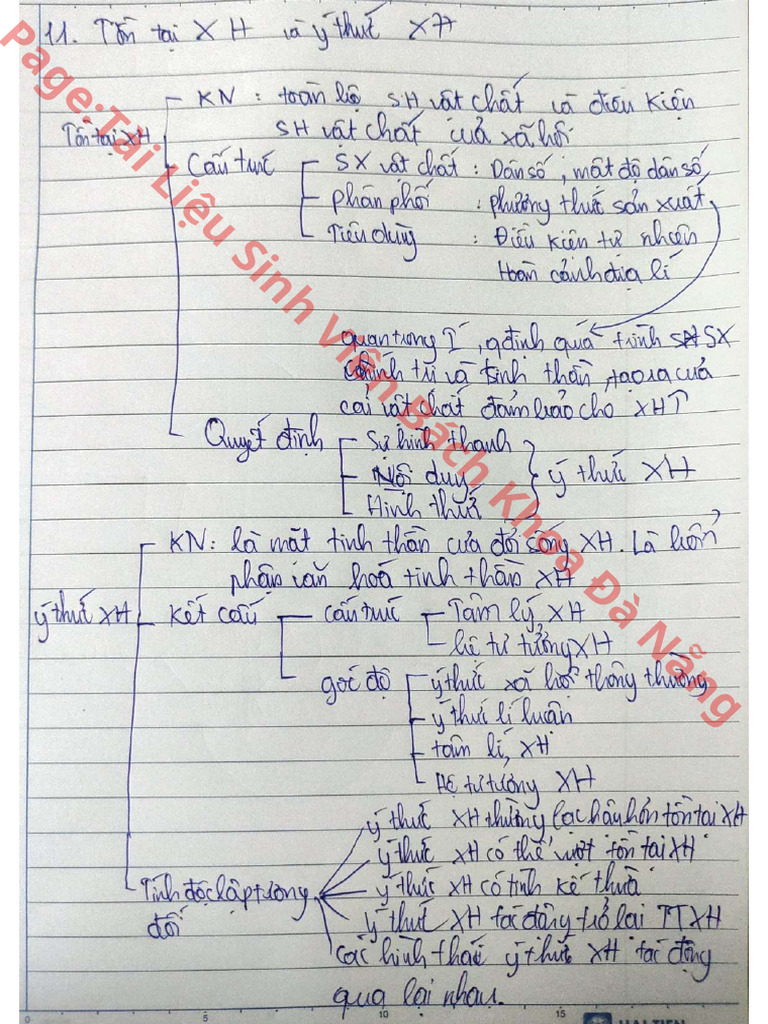 11. Tồn tại XH và ý thức XH
KN : toàn bộ SH vật chất và điều kiện
SH vật chất của xã hội
Tồn tại XH
Cấu trúc
SX vật chất : Dân số, mật độ dân số
phân phối : phương thức sản xuất
Tiêu dùng : Điều kiện tự nhiên
Hoàn cảnh địa lí
quan trọng I, qđịnh quá trình SX
chính trị và tinh thần, tạo ra của
cải vật chất đảm bảo cho XH
Quyết định
Sự hình thành
Nội duy
Hình thức
ý thức XH
KN: là mặt tinh thần của đời sống XH. Là
phận văn hoá tinh thần XH
ý thức XH
kết cấu
cấu trúc
Tâm lý XH
hệ tư tưởng XH
góc độ
ý thức xã hội thông thường
ý thức lí luận
tâm lí, XH
Hệ tư tưởng XH
Tính độc lập tương
đối
ý thức XH thường lạc hậu hơn tồn tại XH
ý thức XH có thể vượt tồn tại XH
ý thức XH có tính kế thừa
ý thức XH tác động trở lại TTXH
các hình thái ý thức XH tác động
qua lại nhau.
Page:Tài Liệu Sinh Viên Bách Khoa Đà Nẵng
0 5 10 15
HAI TIEN